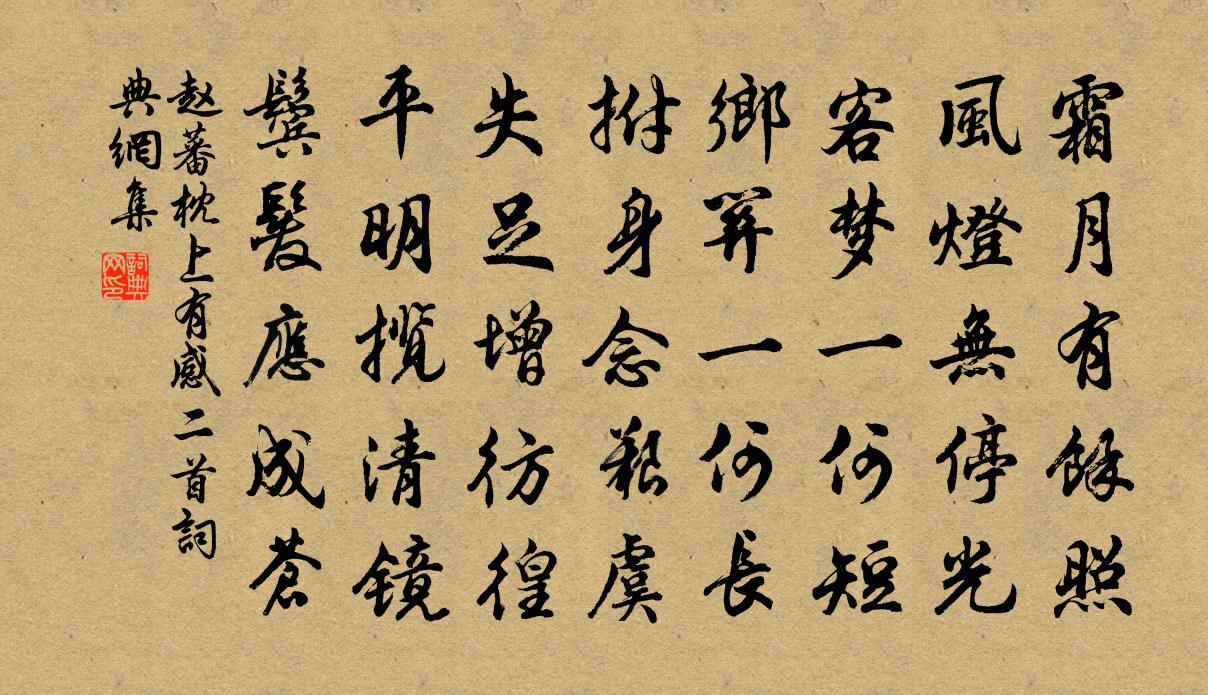 霜月有餘照
風燈無停光
客梦一何短
鄉一何長
拊身念艱虞
失足增彷徨
平明揽清鏡
鬢髮應成蒼
赵蕃枕上有感二首詞
典網集
詞典
网印